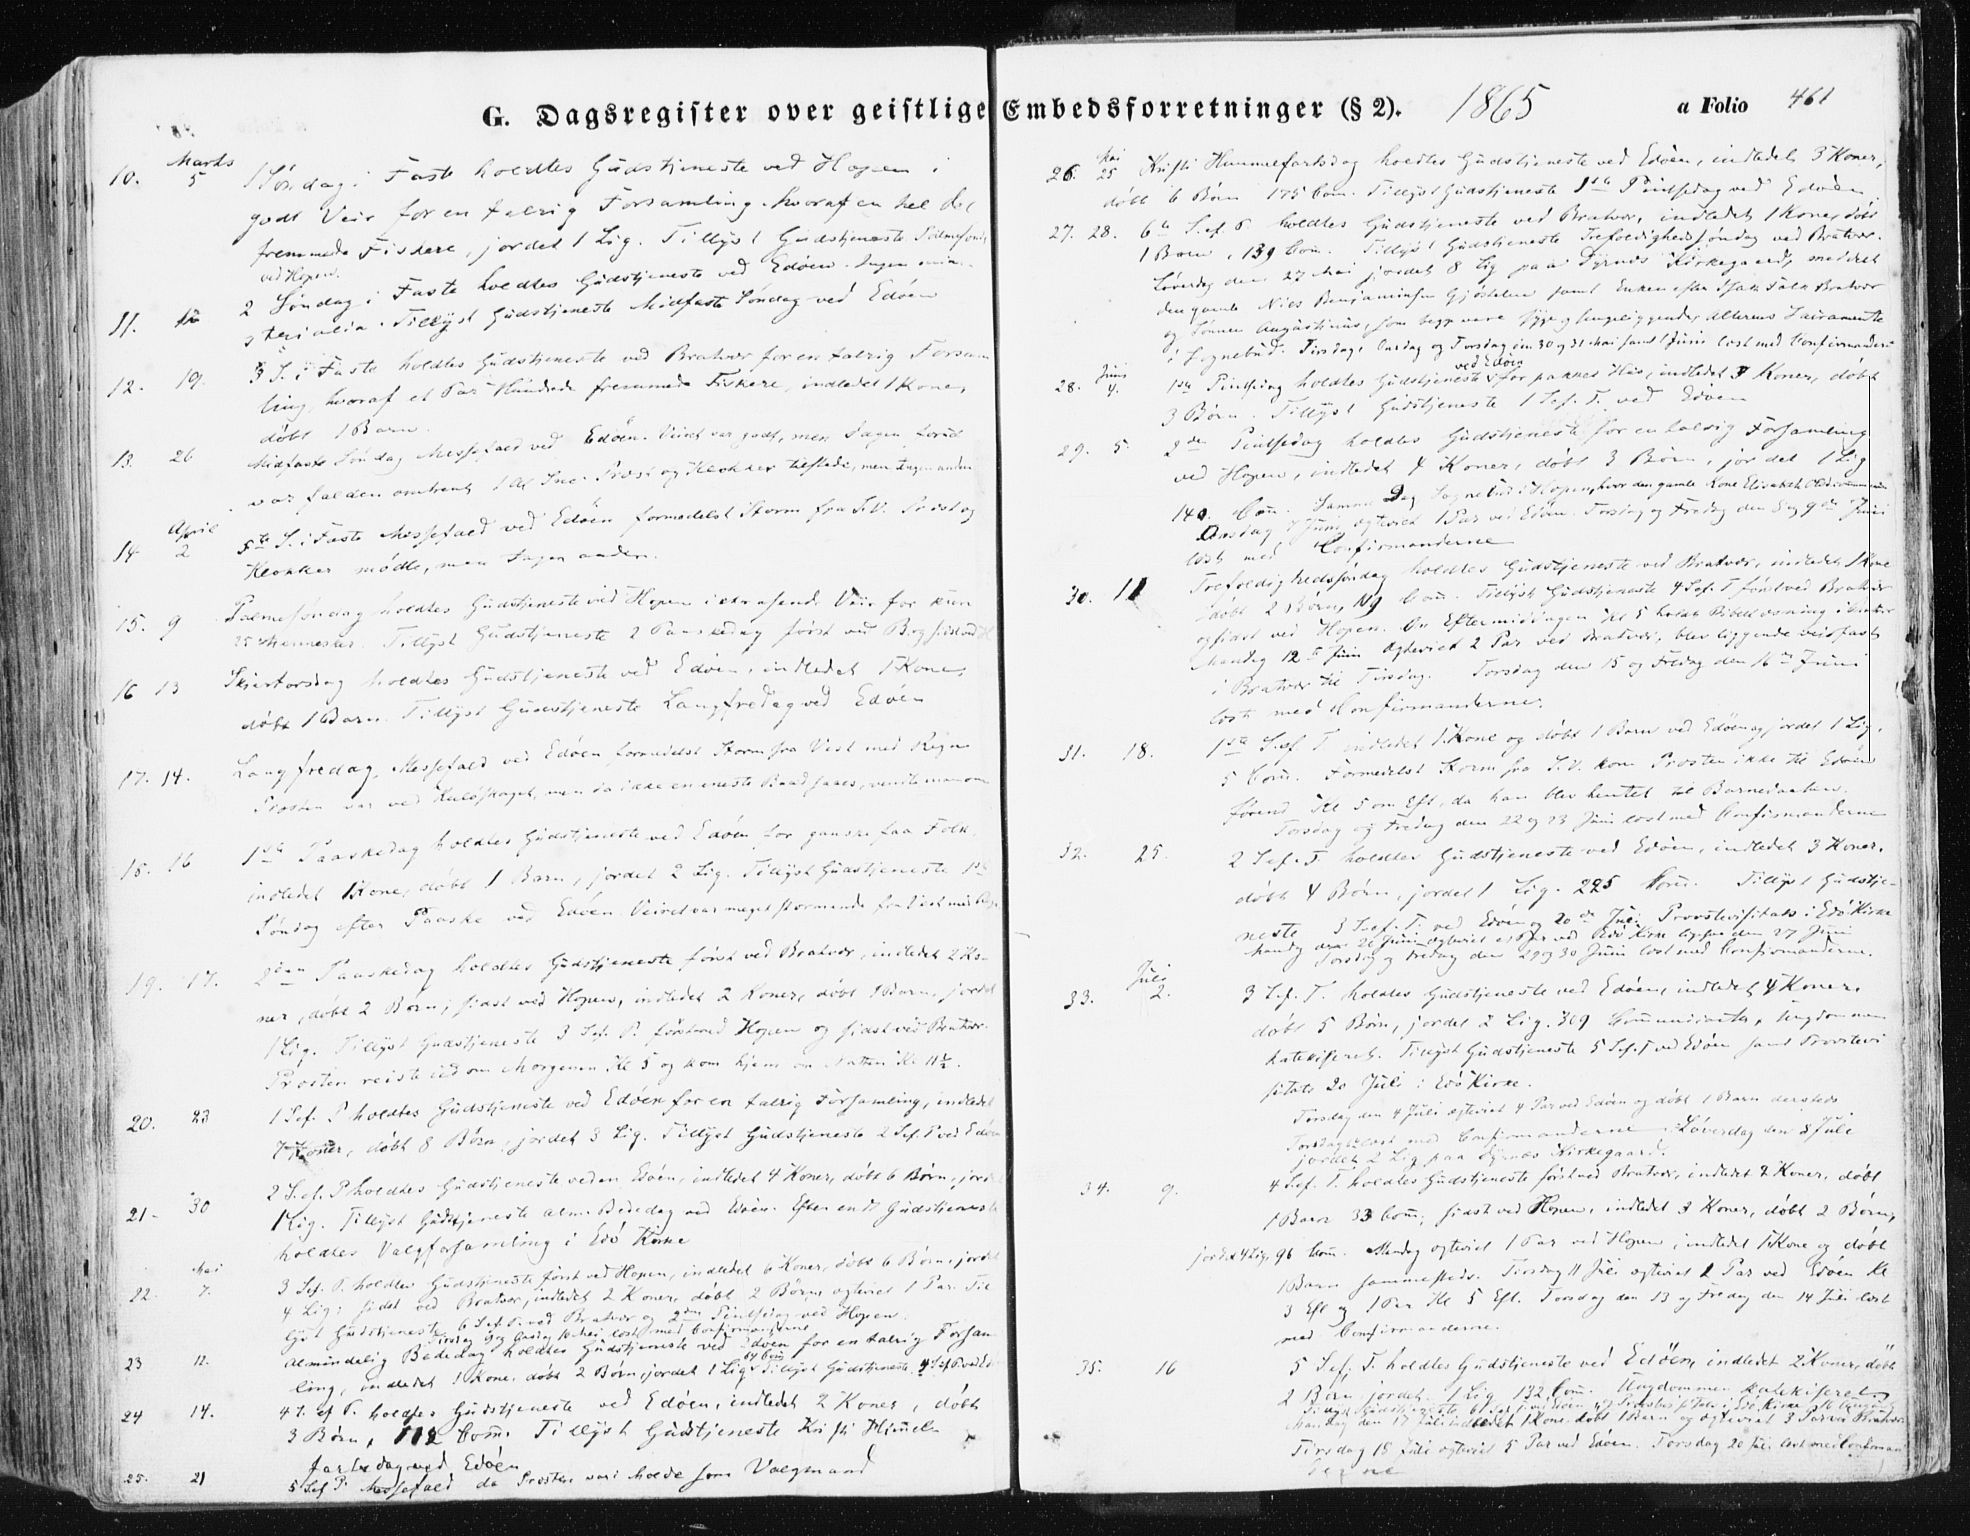 G. Dagsregister over geistlige Embedsforretninger (§ 2). 1865 a Folio 461
Marts
10. 5 1 Søndag i Faste holdtes Gudstjeneste ved Hopen i
godt Veir for en talrig Forsamling hvoraf en hel Del
fremmede Fiskere, jordet 1 Lig. Tillyst Gudstjeneste Palmesønd.
ved Hopen.
11. 12 2 Søndag i Faste holdtes Gudstjeneste ved Edöen. Ingen mini-
sterialia. Tillyst Gudstjeneste Midfaste Søndag ved Edöen
12. 19. 3 S. i Faste holdtes Gudstjeneste ved Bratvær for en talrig Forsam
ling, hvoraf et Par Hundrede fremmede Fiskere, indledet 1 Kone,
döbt 1 Barn.
13. 26 Midfaste Søndag Messefald ved Edöen. Veiret var godt, men Dagen forud
var falden omtrent 1 Al. Sne. Prost og Klokker tilstede, men Ingen anden
April
14 2 5te S. i Faste Messefald ved Edöen formedelst Storm fra S.V. Prost og
Klokker mödte, men Ingen anden.
15. 9 Palmesøndag holdtes Gudstjeneste ved Hopen i Veir for kun
25 Mennesker. Tillyst Gudstjeneste 2 Paaskedag först ved B. og sidst ved H.
16 13 Skjertorsdag holdtes Gudstjeneste ved Edöen, indledet 1 Kone,
döbt 1 Barn. Tillyst Gudstjeneste Langfredag ved Edöen
17. 14. Langfredag, Messefald ved Edöen formedelst Storm fra Vest med Regn
Prosten var ved men da ikke en eneste Baad saaes, vendte man om
18. 16 1ste Paaskedag holdtes Gudstjeneste ved Edöen for ganske faa Folk,
indledet 1 Kone, döbt 1 Barn, jordet 2 Lig. Tillyst Gudstjeneste 1ste
Søndag efter Paaske ved Edöen. Veiret var meget stormende fra Vest med Regn
19. 17. 2den Paaskedag holdtes Gudstjeneste först ved Bratvær, indledet 2 Ko-
ner, döbt 2 Börn; sidst ved Hopen, indledet 2 Koner, döbt 1 Barn, jordet
1 Lig. Tillyst Gudstjeneste 3 S.ef. P. först ved Hopen og sidst ved Bratvær.
Prosten reiste ud om Morgenen Kl 5 og kom hjem om Natten Kl. 11½.
20. 23 1 S.ef. P holdtes Gudstjeneste ved Edöen for en talrig Forsamling, indledet
7 Koner, döbt 8 Börn, jordet 3 Lig. Tillyst Gudstjeneste 2 S.ef. P ved Edöen
21. 30 2 S.ef. P holdtes Gudstjeneste ved Edöen, indledet 4 Koner, döbt 6 Börn, jordet
1 Lig. Tillyst Gudstjeneste alm. Bededag ved Edöen. Efter endt Gudstjeneste
holdtes Valgforsamling i Edö Kirke
Mai
22. 7. 3 S.ef. P. holdtes Gudstjeneste först ved Hopen, indledet 6 Koner, döbt 6 Börn, jordet
4 Lig; sidst ved Bratvær, indledet 2 Koner, döbt 2 Börn, ægteviet 1 Par. Til
lyst Gudstjeneste 6 S.ef. P. ved Bratvær og 2den Pintsedag ved Hopen.
Tirsdag 9 og Onsdag 10 Mai læst med Confirmanderne
23 12. Almindelig Bededag holdtes Gudstjeneste ved Edöen for en talrig Forsam
ling, indledet 1 Kone, döbt 2 Börn, jordet 1 Lig, 64 Com. Tillyst Gudstjeneste 4 S.ef. P. ved Ed.
24 14. 4 S. ef P. holdtes Gudstjeneste ved Edöen, indledet 2 Koner, döbt
3 Börn, 112 Com. Tillyst Gudstjeneste Kristi Himmel-
fartsdag ved Edöen
25. 21 5 S.ef P. Messefald da Prosten var i Molde som Valgmand
Mai
26. 25 Kristi Himmelfartsdag holdtes Gudstjeneste ved Edöen, indledet 3 Koner,
döbt 6 Börn 175 Com. Tillyst Gudstjeneste 1ste Pintsedag ved Edöen
27. 28. 6te S.ef. P. holdtes Gudstjeneste ved Bratvær, indledet 1 Kone, döbt
1 Barn, 139 Com. Tillyst Gudstjeneste Trefoldighedssøndag ved Bratvær.
Løverdag den 27 Mai jordet 8 Lig paa Tyrnæs Kirkegaard, meddelt
den gamle Niels Benjaminsen samt Enken efter Isak Falk Bratvær
og Sönnen Augustinus, som begge vare syge og sengeliggende, Alterens Sacramente
i Sognebud. Tirsdag, Onsdag og Torsdag den 30 og 31 Mai samt 1 Juni læst med Confirmanderne
Juni
28. 4. 1ste Pintsedag holdtes Gudstjeneste ved Edöen for pakket Hus, indledet 3 Koner, döbt
3 Börn. Tillyst Gudstjeneste 1 S.ef. T. ved Edöen
29. 5. 2den Pintsedag holdtes Gudstjeneste for en talrig Forsamling
ved Hopen, indledet 4 Koner, döbt 3 Börn, jordet 1 Lig
140. Com. Samme Dag Sognebud i Hopen, hvor den gamle Kone Elisabeth
Onsdag 7 Juni ægteviet 1 Par ved Edöen. Torsdag og Fredag den 8 og 9de Juni
læst med Confirmanderne
30. 11 Trefoldighedssøndag holdtes Gudstjeneste ved Bratvær, indledet 1 Kone
döbt 2 Börn, 109 Com. Tillyst Gudstjeneste 4 S.ef. T. först ved Bratvær
og sidst ved Hopen. Om Eftermiddagen Kl 5 holdt Bibellæsning i
Mandag 12te Juni ægteviet 2 Par ved Bratvær, blev liggende veirfast
i Bratvær til Tirsdag. Torsdag den 15 og Fredag den 16de Juni
læst med Confirmanderne.
31. 18. 1ste S.ef T. indledet 1 Kone og döbt 1 Barn ved Edöen og jordet 1 Lig,
5 Com. Formedelst Storm fra S.V. kom Prosten ikke til Edöen
förend Kl 5 om Eft., da han blev hentet til Barnedaaben.
Torsdag og Fredag den 22 og 23 Juni læst med Confirmanderne
32. 25. 2 S.ef. T. holdtes Gudstjeneste ved Edöen, indledet 3 Koner,
döbt 4 Börn, jordet 1 Lig. 225 Com. Tillyst Gudstje-
neste 3 S.ef. T. ved Edöen og 20de Juli Provstevisitats i Edö Kirke
Mandag den 26 Juni ægteviet et Par ved Edö Kirke ligesaa den 27 Juni
Torsdag og Fredag den 29 og 30 Juni læst med Confirmanderne.
Juli
33. 2. 3 S.ef. T. holdtes Gudstjeneste ved Edöen, indledet 4 Koner,
döbt 5 Börn, jordet 2 Lig. 309 Communicanter, Ungdommen
katekiseret. Tillyst Gudstjeneste 5 S.ef. T ved Edöen samt Provstevi
sitats 20 Juli i Edö Kirke.
Tirsdag den 4 Juli ægteviet 4 Par ved Edöen og döbt 1 Barn dersteds
Torsdag læst med Confirmanderne. Løverdag den 8 Juli
jordet 2 Lig paa Tyrnæs Kirkegaard.
34. 9. 4 S.ef. T. holdtes Gudstjeneste först ved Bratvær, indledet 2 Koner, döbt
1 Barn 33 Com; sidst ved Hopen, indledet 3 Koner, döbt 2 Börn,
jordet 4 Lig, 96 Com. Mandag ægteviet 1 Par ved Hopen, indledet 1 Kone og döbt
1 Barn sammesteds. Tirsdag 11 Juli ægteviet 1 Par ved Edöen Kl
3 Eft og 1 Par Kl 5 Eft. Torsdag den 13 og Fredag den 14 Juli læst
med Confirmanderne.
35. 16 5 S.ef. T. holdtes Gudstjeneste ved Edöen, indledet 2 Koner, döbt
2 Börn, jordet 1 Lig 132 Com. Ungdommen katekiseret.
Tillyst Gudstjeneste 6 S.ef. T. ved Edöen og Provstevisitats i Edö Kirke
Mandag den 17 Juli indledet 1 Kone, döbt 1 Barn og ægteviet 3 Par ved Bratvær
Tirsdag 18 Juli ægteviet 5 Par ved Edöen. Torsdag 20 Juli læst med Confirman
derne